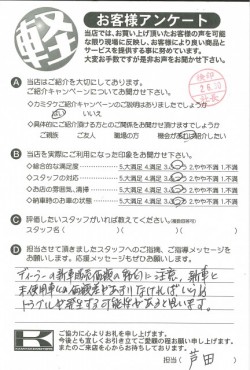 軽
お客様アンケート
当店では、お買い上げ頂いたお客様の声を可能
な限り現場に反映し、お客様により良い商品と
サービスを提供する事に努めています。
大変お手数ですが是非お声をお聞かせ下さい。
A 当店はご紹介を大切にしております。
ご紹介キャンペーンについてお聞かせ下さい
◇カミタクご紹介キャンペーンのご説明はありましたでしょうか
はい いいえ
◇具体的にご紹介頂ける方とのご関係をお聞かせ頂けますでしょうか
ご親族 ご友人 職場の方 機会があれば紹介したい
B 当店を実際にご利用になった印象をお聞かせ下さい。
◇総合的な満足度 5.大満足 4.満足 3. 2.やや不満 1.不満
◇スタッフの対応 5.大満足 4.満足 3. 2.やや不満 1.不満
◇お店の雰囲気、清掃 5.大満足 4.満足 3. 2.やや不満 1.不満
◇納車時のお車の状態 5.大満足 4.満足 3. 2.やや不満 1.不満
C 評価したいスタッフがいれば教えてください。
スタッフ名( )( )( )
D 担当させて頂きましたスタッフへのご指摘、ご指導メッセージを
お願いします。応援メッセージもぜひお願いします。
ディーラーの新車販売価額の割引に注意、新車と
未使用車の価額差があまりなければ
トラブルが発生する可能性があると思います。
K
ご協力に心よりお礼を申し上げます。
今後とも宜しくお引き立てご愛顧の程お願い申し上げます。
またのご来店を心からお待ちしております。
担当( 芦田 )